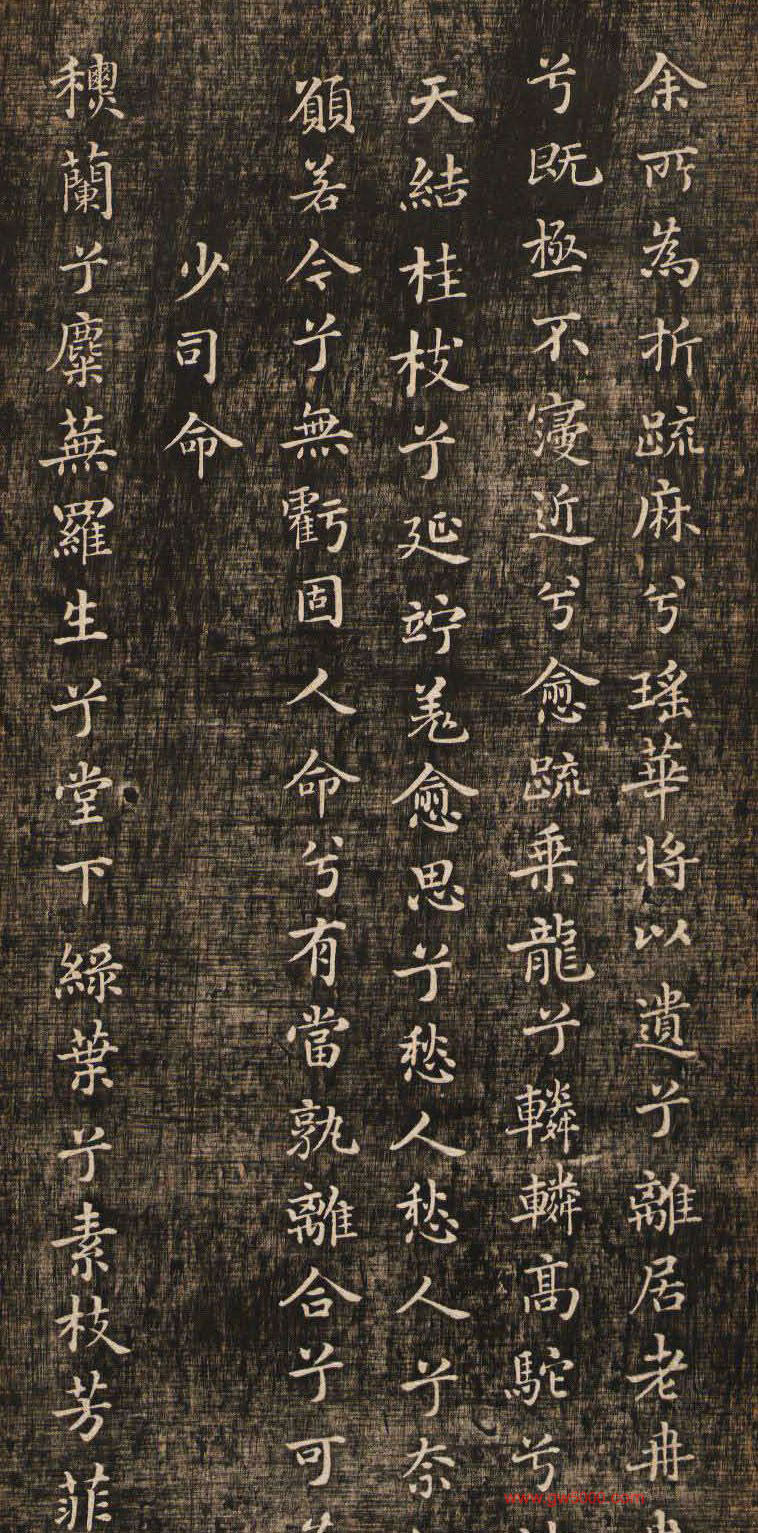 余所為折䟽麻兮瑤華将以遺兮離居老冉
兮既極不寖近兮愈䟽乗龍兮轔轔髙駝兮
天結桂枝兮延竚羌愈思兮愁人愁人兮奈
願若今兮無虧固人命兮有當孰離合兮可
少司命
蘭兮麋蕪羅生兮堂下緑葉兮素枝芳菲